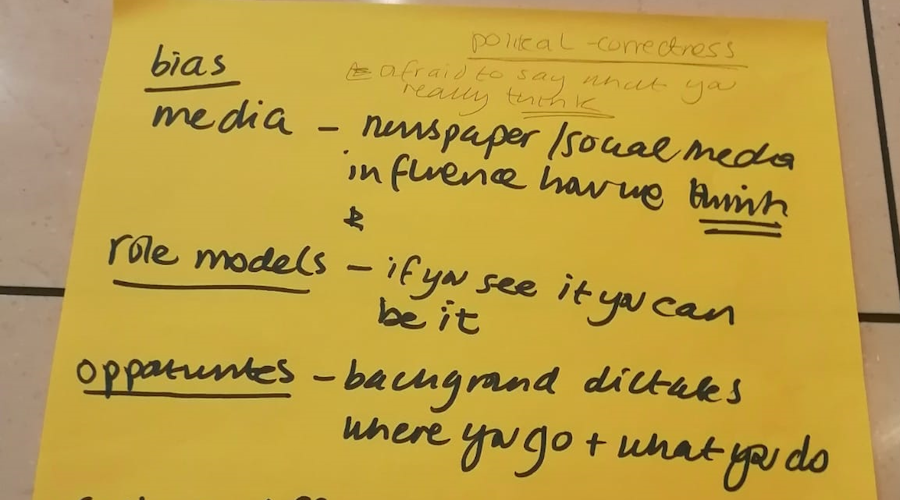 political-correctness
afraid to say what you
really think
bias
media - newspaper/social media
influence how we think
role models - if you see it you can
be it
opportunites - background dictates
where you go + what you do